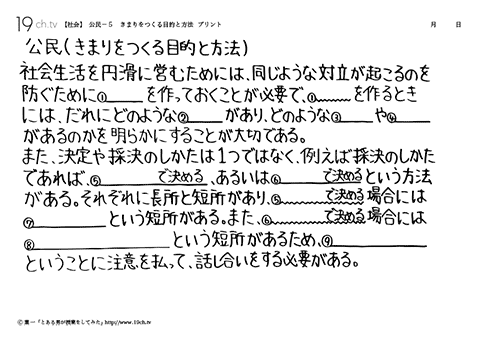 19ch.tv 【社会】 公民－5 きまりをつくる目的と方法 プリント 月 日
公民(きまりをつくる目的と方法)
社会生活を円滑に営むためには、同じような対立が起こるのを
防ぐために①＿＿＿を作っておくことが必要で、①＿＿＿を作るとき
には、だれにどのような②＿＿＿があり、どのような③＿＿＿や④＿＿＿
があるのかを明らかにすることが大切である。
また、決定や採決のしかたは1つではなく、例えば採決のしかた
であれば、⑤＿＿＿で決める、あるいは⑥＿＿＿で決めるという方法
がある。それぞれに長所と短所があり、⑤＿＿＿で決める場合には
⑦＿＿＿という短所がある。また、⑥＿＿＿で決める場合には
⑧＿＿＿という短所があるため、⑨＿＿＿
ということに注意を払って、話し合いをする必要がある。
©葉一「とある男が授業をしてみた」http://www.19ch.tv